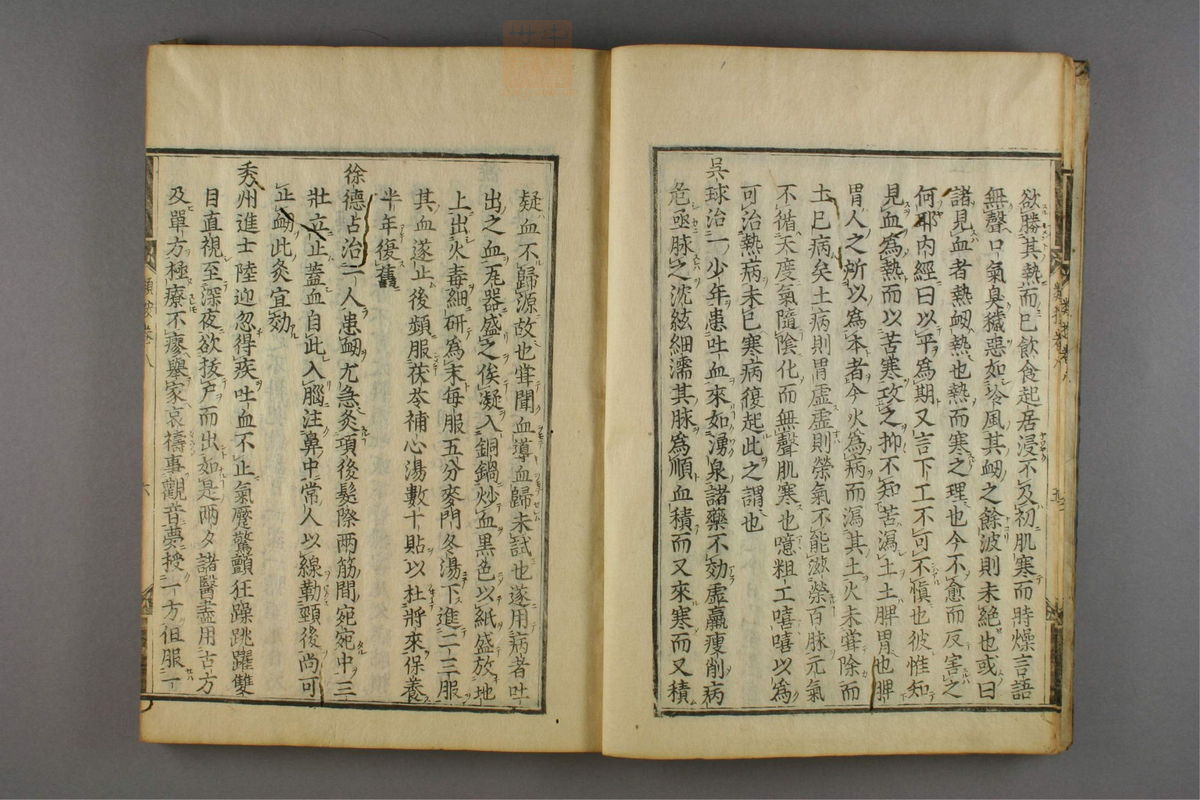 欲勝其熱而已飲食起居浸不及初肌寒而時燥言語
無聲口氣臭穢惡如冷風其衂之餘波則未絶也或曰
諸見血者熱衂熱也熱而寒之理也今不愈而反害之
何耶内經曰以平爲期又言下工不可不愼也彼惟知
見血爲熱而以苦寒攻之抑不知苦瀉土土脾胃也脾
胃人之所以爲本者今火爲病而瀉其土火未甞除而
土已病矣土病則胃虚虚則榮氣不能滋榮百脉元氣
不循天度氣隨陰化而無聲肌寒也噫粗工嘻嘻以爲
可治熱病未已寒病復起此之謂也
吳球治一少年患吐血來如湧泉諸藥不効虚羸瘦削病
危亟脉之沈絃細濡其脉爲順血積而又來寒而又積
疑血不歸源故也甞聞血導血歸未試也遂用病者吐
出之血瓦器盛之俟凝入銅鍋炒血黒色以紙盛放地
上出火毒細研爲末毎服五分麥門冬湯下進二三服
其血遂止後頻服茯苓補心湯數十貼以杜將來保養
半年復舊
徐德占治一人患衂尤急灸項後髮際兩筋間宛宛中三
壯立止蓋血自此入腦注鼻中常人以線勒頸後尚可
止衂此灸宜効
秀州進士陸迎忽得疾吐血不止氣蹷驚顫狂躁跳躍雙
目直視至深夜欲拔戸而出如是兩夕諸醫盡用古方
及單方極療不瘳舉家哀禱事觀音夢授一方但服一